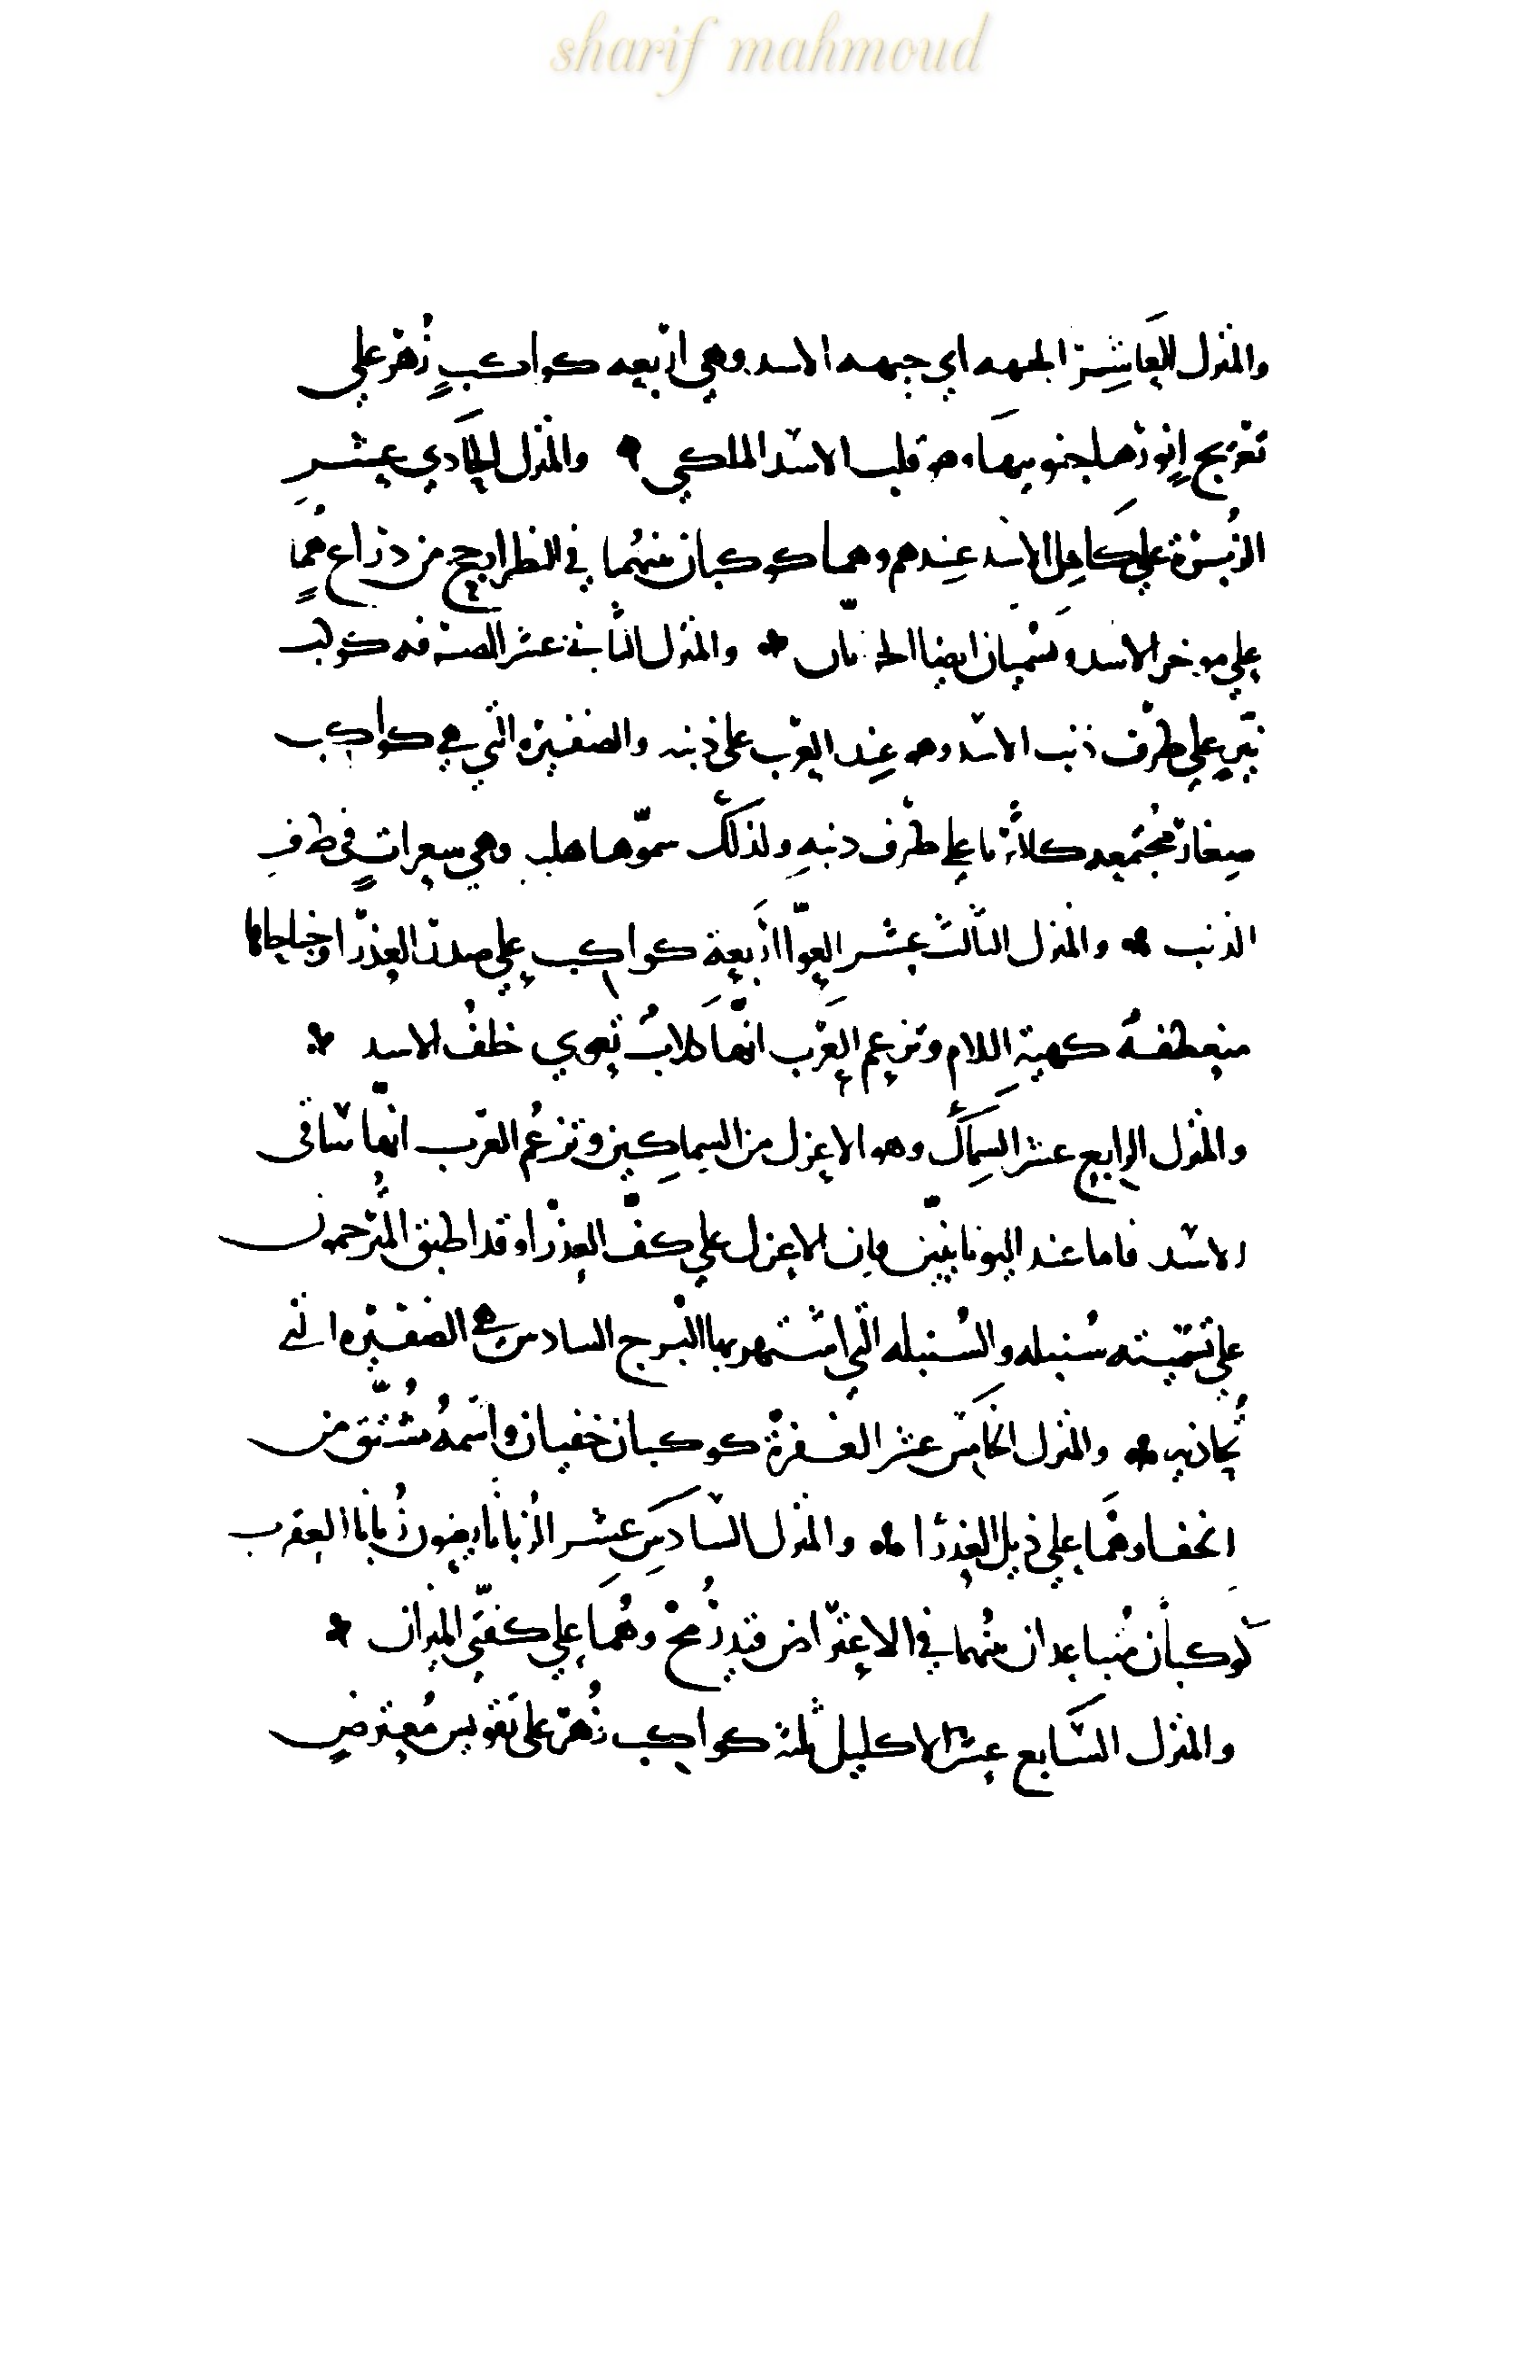 sharif mahmoud
والمنزل العَاشِر الجبهه اي جبهه الاسد وهي اربعه كواكبٍ زُهر علي
تعريج انورها جنوبيهَا وهو قلب الاسد الملكي والمنزل الحَادي عشر
الزُبرة علي كَاهِل الاسد عِندهم وهما كوكبان بينهُما في النظر ارجح من ذراع هُمَا
علي موخر الاسد ويسَميان ايضا الخراتان والمنزل الثاني عشر الصرفه كوكب
نيّر علي طرف ذنب الاسد وهو عِند العرب علي ذنبه والضفيره التي هي كواكب
صِغار مُجتمعه علي طرف ذنبهِ ولذلكَ سمّوها هلب وهي شعراتٍ في طرفِ
الذنب والمنزل الثالث عشر العوّا اربَعة كواكب علي صدر العذرا وجناحها
منعطفهُ كهيئة اللام وتزعم العرَب انّهَا كلابٌ تعوي خلفُ الاسد
والمنزل الرابع عشر السِماكَ وهو الاعزل من السِماكِين وتزعُم العرب انّها ساقي
الاسد فاما عند اليونانيّين فان الاعزل علي كفّ العذرا وقد اطبق المُترجمون
علي تسميته سُنبله والسُنبله التي اشتهر بها البرج السادس هي الضفيره التي
تُحاذيه والمنزل الخامَس عشر الغفرة كوكبان خفيان واسمهُ مُشتّق من
الخفا وهُمَا علي ذيل العذرا والمنزل السَادسِ عشر الزُبانا يعنون زُبانا العقرب
كَوكبان مُتباعدان بينهُما في الاعتراض قيد رُمح وهُمَا علي كفّتي الميزان
والمنزل السَابع عشر الاكليل ثلثة كواكب زُهر علي تقويس مُعترضٍ